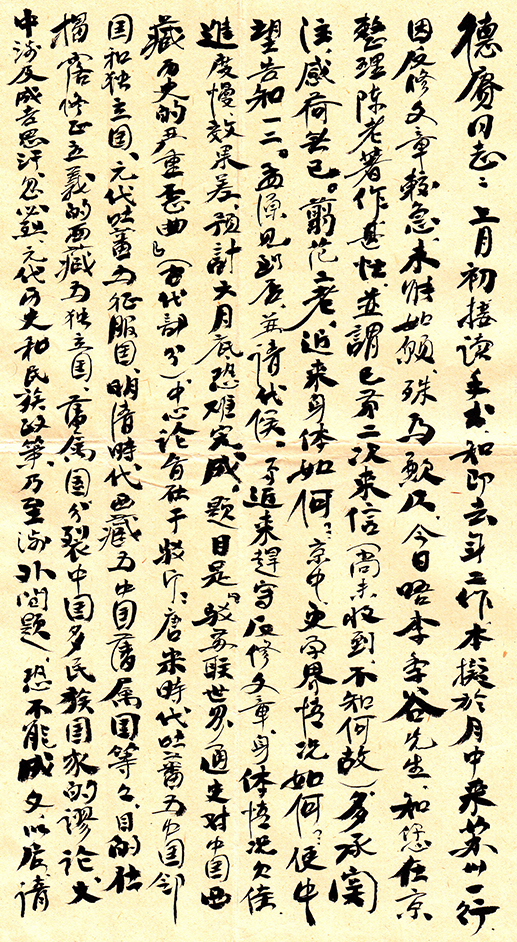 德赓同志：上月初接读手书，知即去京工作。本拟於月中来苏州一行，
因反修文章较急，未能如願，殊为歉仄。今日晤李季谷先生，知您在京
整理陈老著作甚忙，並謂已第二次来信（尚未收到，不知何故）多承関
注，感荷无已。翦范二老，近来身体如何？京中史学界情况如何？便中
望告知一二。孟源见到否，並请代候。弟近来趕写反修文章，身体情况欠佳，
進度慢，效果差，预計六月底恐难完成。题目是“駁苏联世界通史对中国西
藏历史的严重歪曲”（古代部分）中心论旨在于駁斥：唐宋时代吐蕃为中国邻
国和独立国、元代吐蕃为征服国、明清時代西藏为中国藩属国等々、目的在
揭露修正主義的西藏为独立国、藩属国分裂中国多民族国家的謬论。文
中涉及成吉思汗、忽必烈、元代历史和民族政策，乃至涉外问题，恐不能成文，以后请